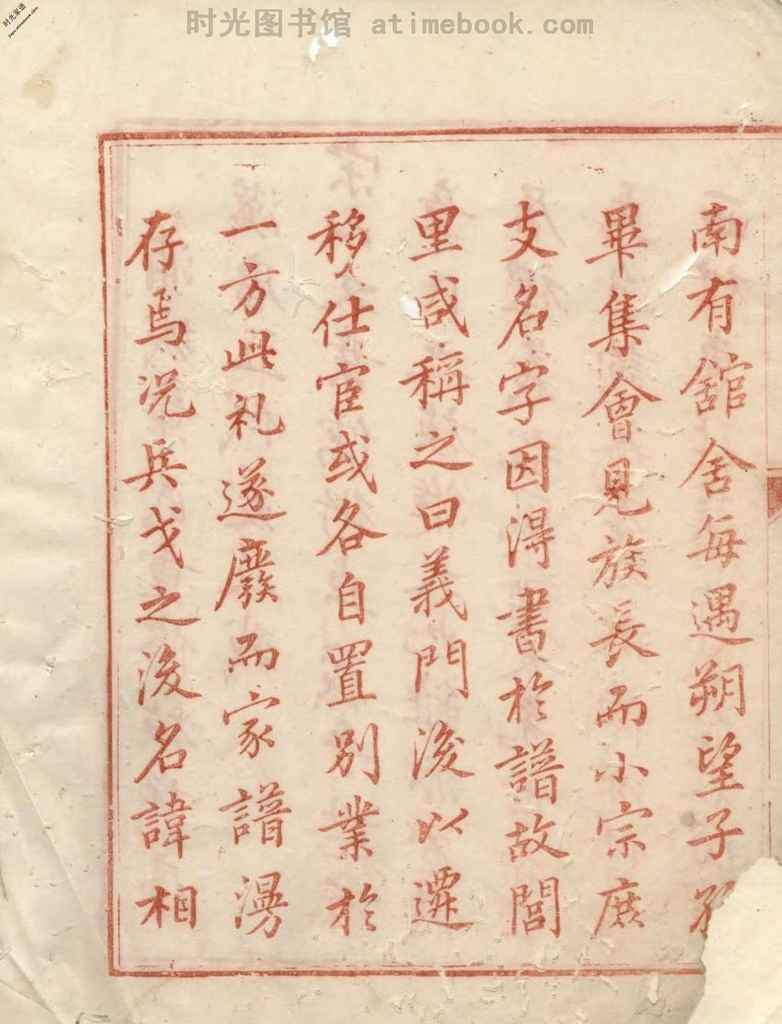 时光图书馆 atimebook.com
时光家谱
www.atimebook.com
南有舘舍每遇朔望子
畢集會見族長而小宗庶
支名字因得書於譜故閭
里咸稱之曰義門後以遷
移仕宦或各自置别業於
一方此礼遂廢而家譜漫
存焉况兵戈之後名諱相